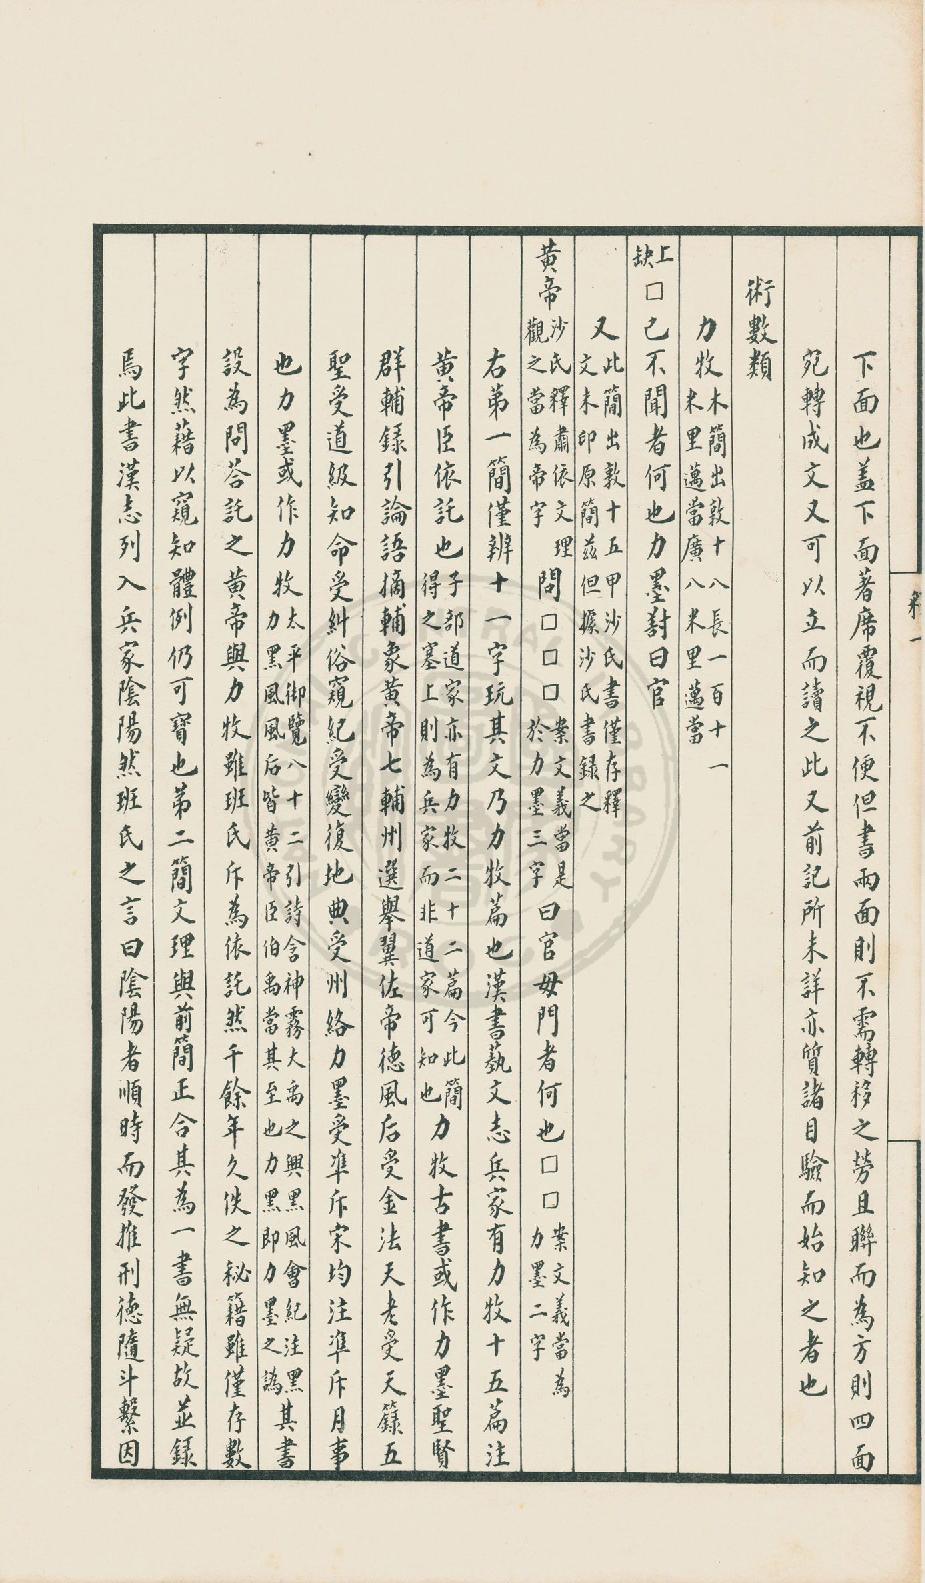 下面也蓋下面著席覆視不便但書兩面則不需轉移之勞且聯而為方則四面
宛轉成文又可以立而讀之此又前記所未詳亦質諸目驗而始知之者也
術數類
力牧木簡出敦十八長一百十一
米里邁當廣八米里邁當
上缺□已不聞者何也力墨對曰官
又此簡出敦十五甲沙氏書僅存釋
文未印原簡茲但據沙氏書錄之
黃帝沙氏釋肅依文理
觀之當為帝字問□□□案文義當是
於力墨三字曰官毋門者何也□□案文義當為
力墨二字
右第一簡僅辨十一字玩其文乃力牧篇也漢書藝文志兵家有力牧十五篇注
黃帝臣依託也子部道家亦有力牧二十二篇今此簡
得之塞上則為兵家而非道家可知也力牧古書或作力墨聖賢
群輔錄引論語摘輔象黃帝七輔州選舉翼佐帝德風后受金法天老受天籙五
聖受道級知命受糾俗窺紀受變復地典受州絡力墨受準斥宋均注準斥月事
也力墨或作力牧太平御覽八十二引詩含神霧大禹之興黑風會紀注黑
力黑風風后皆黃帝臣伯禹當其至也力黑即力墨之譌其書
設為問答託之黃帝與力牧雖班氏斥為依託然千餘年久佚之秘籍雖僅存數
字然藉以窺知體例仍可寶也第二簡文理與前簡正合其為一書無疑故並錄
焉此書漢志列入兵家陰陽然班氏之言曰陰陽者順時而發推刑德隨斗擊因
釋一